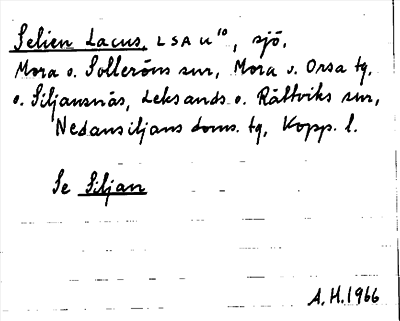 Selien Lacus, LSA u¹⁰, sjö,
Mora o. Solleröns snr, Mora o. Orsa tg.
o. Siljansnäs, Leksands o. Rättviks snr,
Nedansiljans doms. tg, Kopp. l.
Se Siljan
A.H.1966